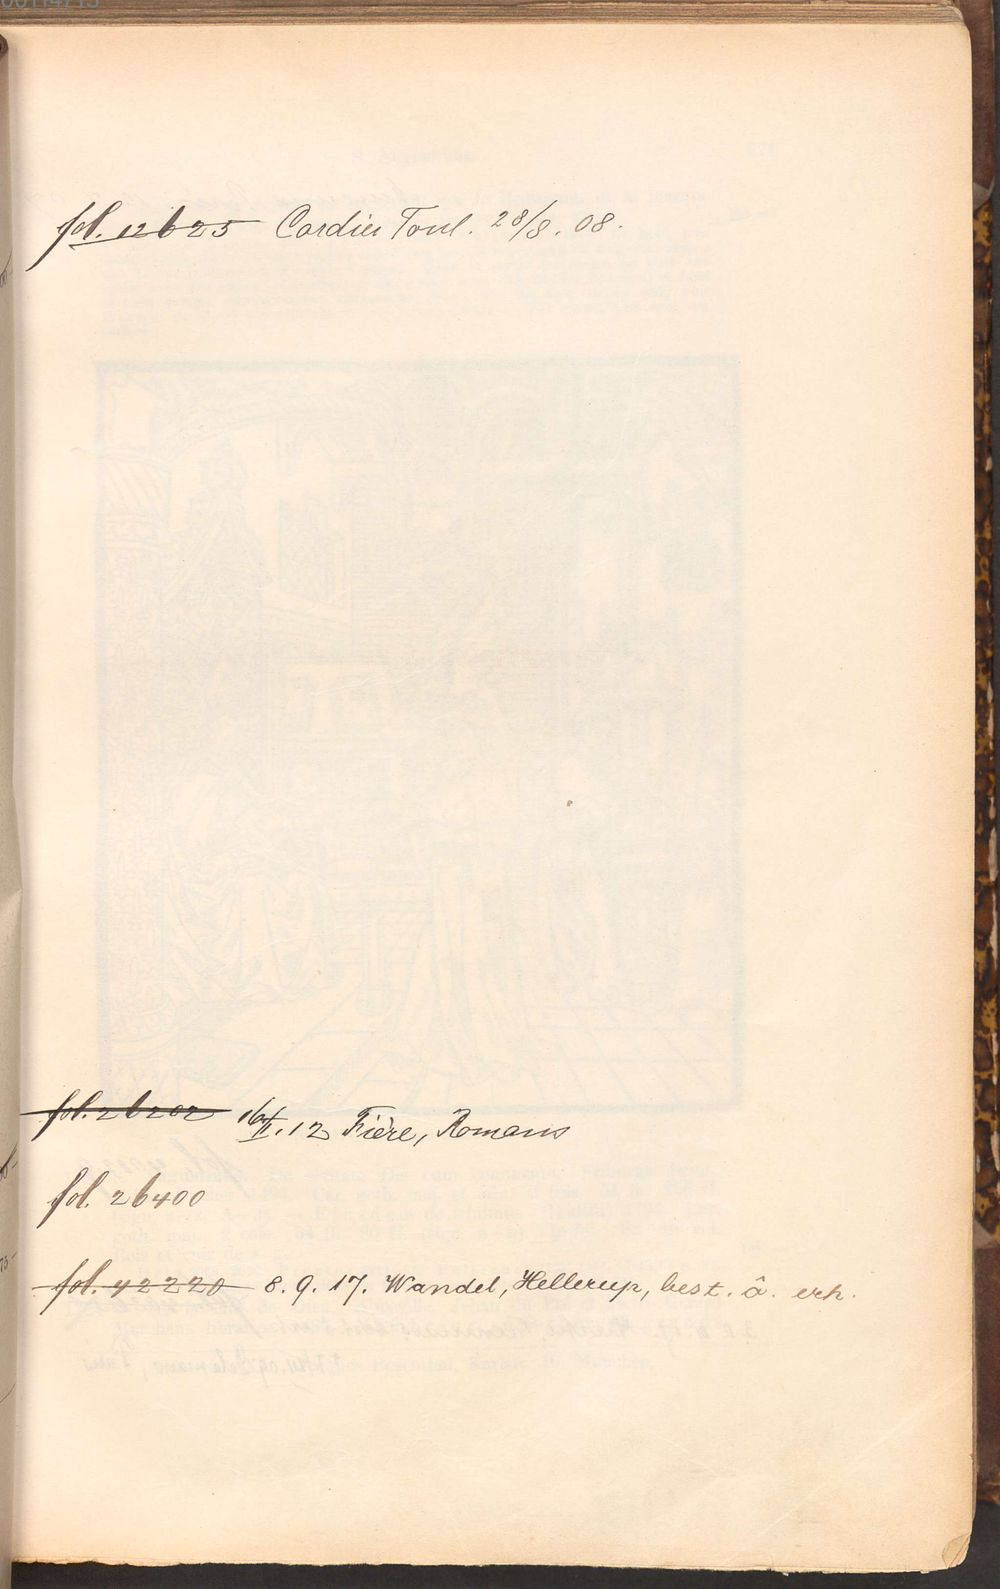 fol. 12625 Cordier Toul. 28/8. 08.
fol. 26202 16/II. 12 Fière, Romans
fol. 26400
fol. 42220 8. 9. 17. Wandel, Hellerup, best. â. erh.